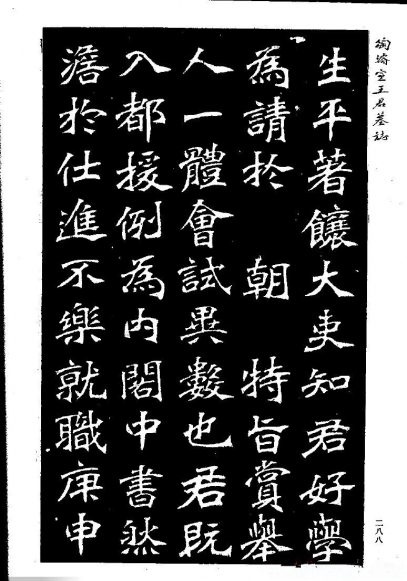 陶濬宣王君墓誌
生平著饟大吏知君好學
為請於 朝 特旨賞舉
人一體會試異數也君既
入都援例為內閣中書然
澹於仕進不樂就職庚申
二八八